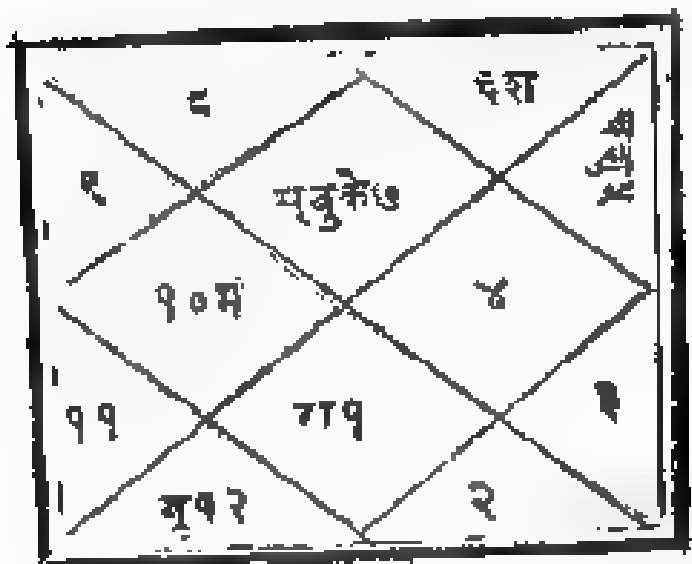 ८
६श
९
सूबुके७
१०मं
४
११
रा१
३
२